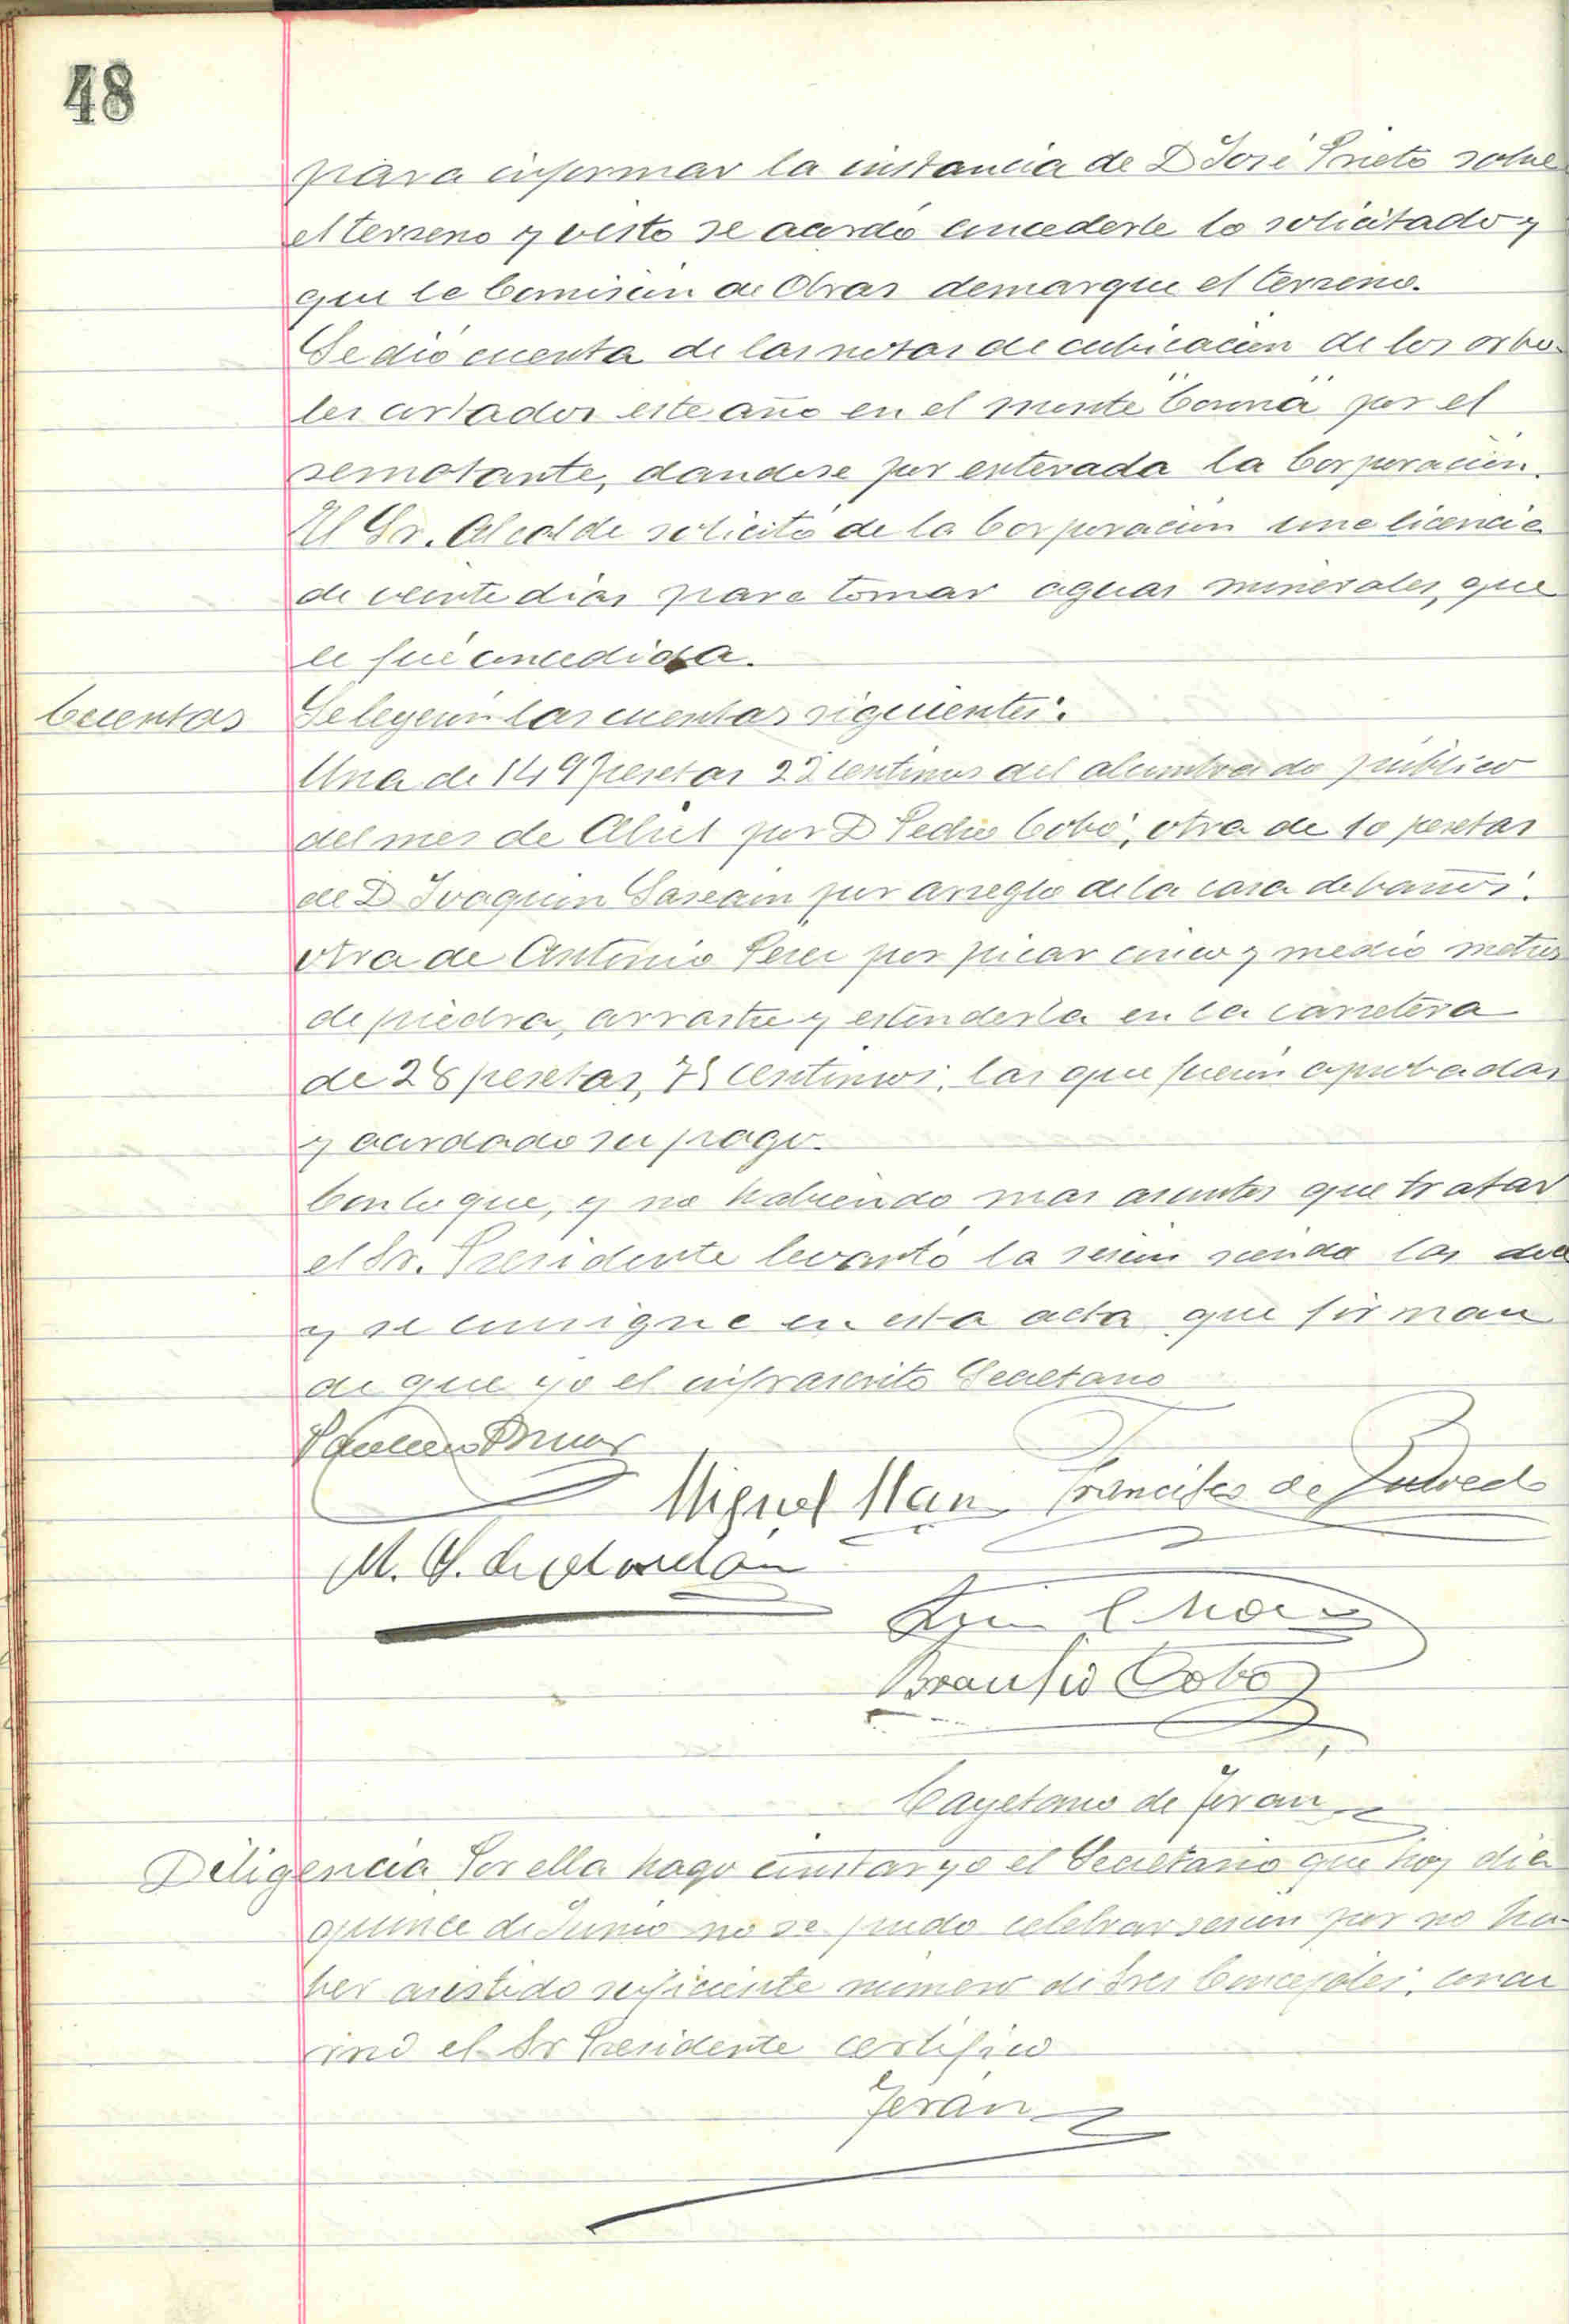 48
para informar la instancia de D José Prieto sobre
el terreno y visto se acordó concederle lo solicitado y
que la Comision de Obras demarque el terreno.
Se dió cuenta de las notas de cubicación de los arbo-
les cortados este año en el monte "Corona" por el
rematante, dandose por enterada la Corporación.
El Sr. Alcalde solicitó de la Corporación una licencia
de veinte dias para tomar aguas minerales, que
le fué concedida.
Cuentas Se leyeron las cuentas siguientes.
Una de 149 pesetas 22 centimos del alumbrado público
del mes de Abril por D Pedro Cobo, otra de 10 pesetas
de D Joaquin por arreglo de la casa de baños.
otra de Antonio Perez por picar cinco y medio metros
de piedra, arrastre y estenderla en la carretera
de 28 pesetas, 75 centimos, las que fueron aprobadas
y acordado su pago.
Con lo que, y no habiendo mas asuntos que tratar
el Sr. Presidente levantó la sesión siendo las doce
y se consigne en esta acta que firman
de que yo el infrascrito Secretario
Miguel Francisco de Quevedo
M. G. de
Braulio Cobo
Cayetano de Terán
Diligencia Por ella hago constar yo el Secretario que hoy dia
quince de Junio no se pudo celebrar sesión por no ha-
ber asistido suficiente número de Sres Concejales, concu
rrió el Sr Presidente certifico
Terán